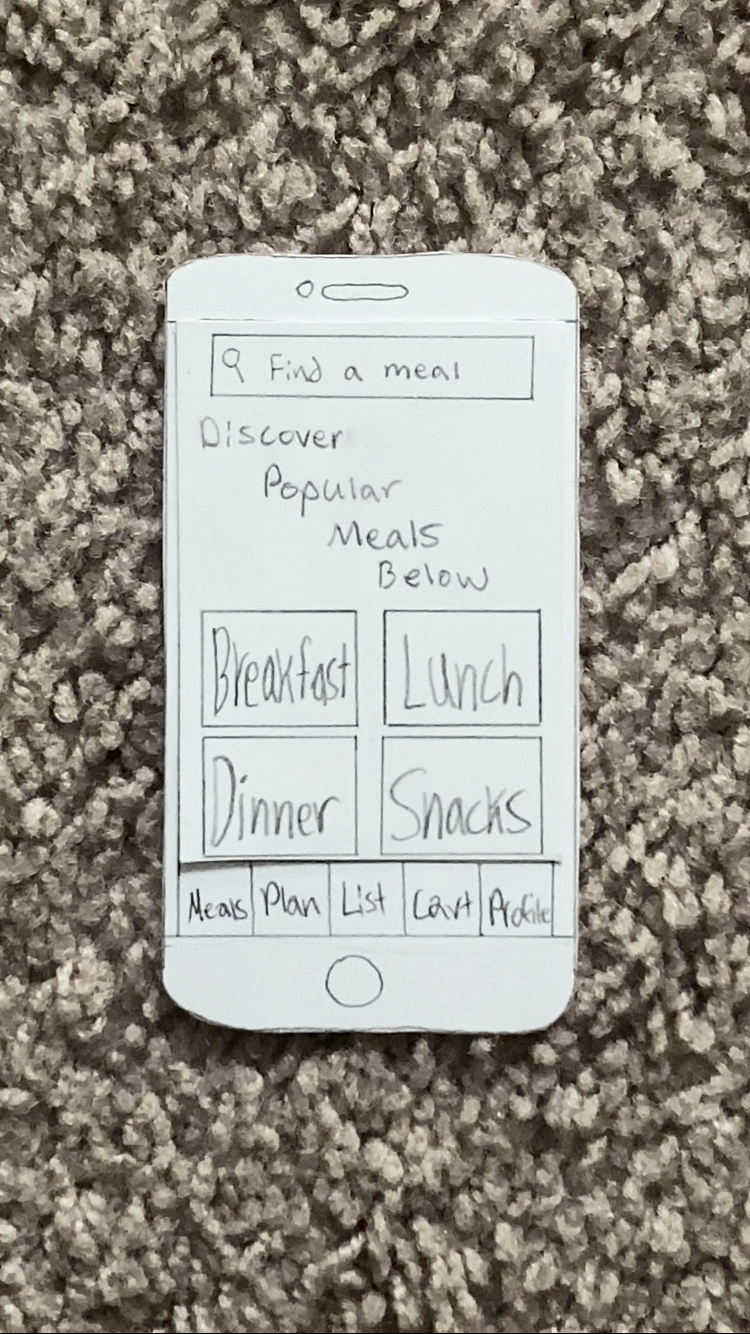 Find a meal
Discover
Popular
Meals
Below
Breakfast Lunch
Dinner Snacks
Meals Plan List Cart Profile